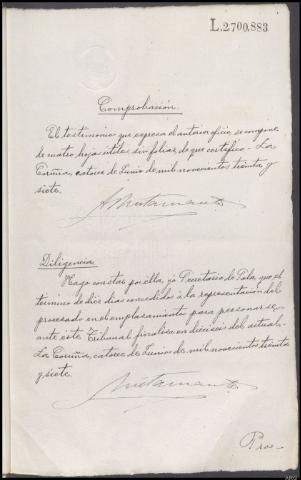 L.2700.883
Comprobación.
El testimonio que expresa el anterior oficio, se compone
de cuatro hojas útiles, sin foliar, de que certifico.- La
Coruña, catorce de Junio de mil novecientos treinta y
siete.
Diligencia.
Hago constar por ella, yo Secretario de Sala, que el
termino de diez dias concedidos á la representación del
procesado en el emplazamiento para personarse,
ante este Tribunal finalizo en dieciseis del actual.-
La Coruña, catorce de Junio de mil novecientos treinta
y siete.
Pro=